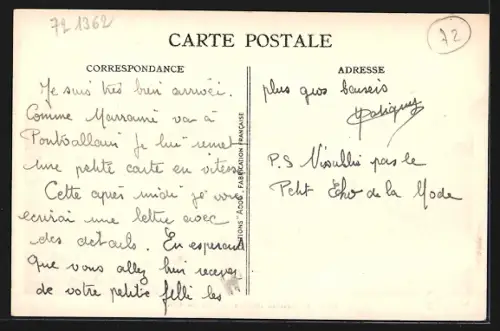 72 1362
72
CARTE POSTALE
CORRESPONDANCE
Je suis très bien arrivée.
Comme Marraine va à
Pontvallain je lui remet
une petite carte en vitesse
Cette après midi je vous
ecrirai une lettre avec
des détails. En esperant
que vous allez bien recevez
de votre petite fille les
FABRICATION FRANÇAISE
ADRESSE
plus gros baisers
P.S N'oubliez pas le
Petit Echo de la Mode